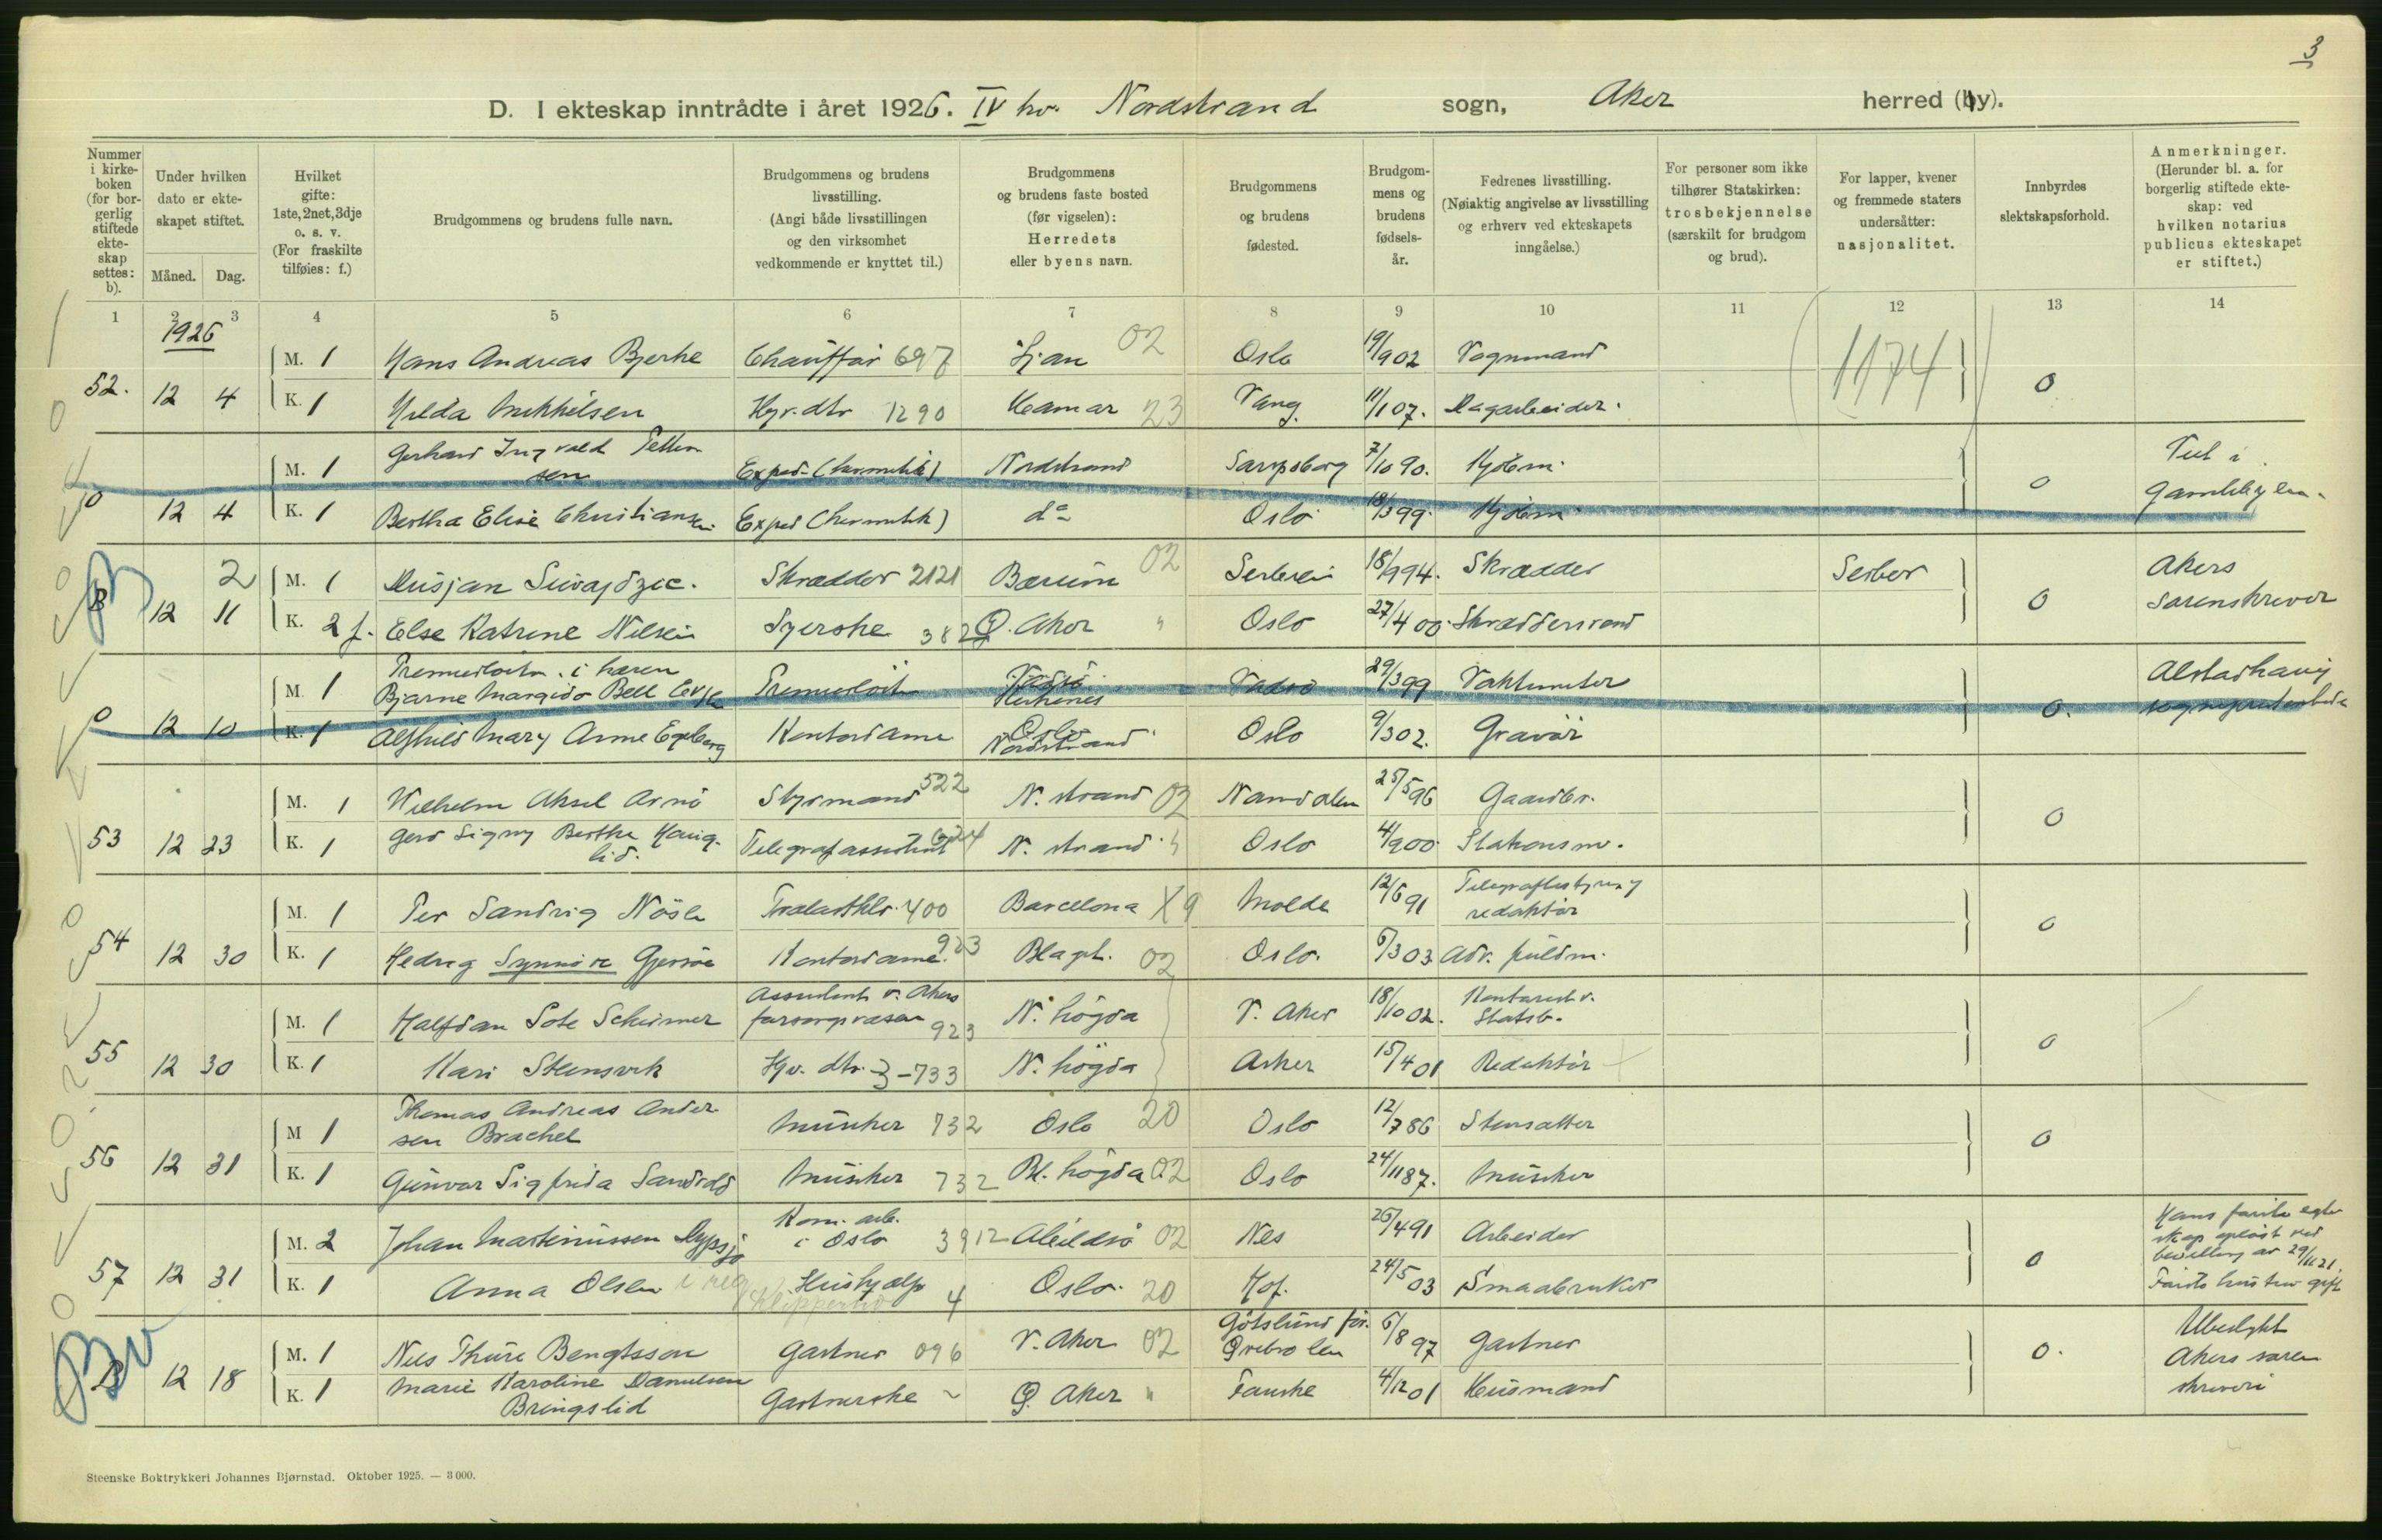 3
D. I ekteskap inntrådte i året 1926. IV kv. Nordstrand sogn, Aker herred (by).
Nummer i kirke-boken (for bor-gerlig stiftede ekte-skap settes: b).
Under hvilken dato er ekte-skapet stiftet.
Måned. Dag.
Hvilket gifte: 1ste, 2net, 3dje o. s. v. (For fraskilte tilføies: f.)
Brudgommens og brudens fulle navn.
Brudgommens og brudens livsstilling. (Angi både livsstillingen og den virksomhet vedkommende er knyttet til.)
Brudgommens og brudens faste bosted (før vigselen): Herredets eller byens navn.
Brudgommens og brudens fødested.
Brudgom-mens og brudens fødsels-år.
Fedrenes livsstilling. (Nøiaktig angivelse av livsstilling og erhverv ved ekteskapets inngåelse.)
For personer som ikke tilhører Statskirken: trosbekjennelse (særskilt for brudgom og brud).
For lapper, kvener og fremmede staters undersåtter: nasjonalitet.
Innbyrdes slektskapsforhold.
Anmerkninger. (Herunder bl. a. for borgerlig stiftede ekte-skap: ved hvilken notarius publicus ekteskapet er stiftet.)
1 2 3 4 5 6 7 8 9 10 11 12 13 14
1926
M. 1 Hans Andreas Bjerke Chauffør 697 Ljan 02 Oslo 19/9 02 Vognmand 1174
52. 12 4 K. 1 Hilda Mikkelsen Hgv. dtr 1290 Hamar 23 Vang 11/1 07. Dagarbeider. 0
M. 1 Gerhard Ingvald Petter-
sen Exped. (hermetik) Nordstrand Sarpsborg 7/10 90. Kjøbm. 0 Tut i
0 12 4 K. 1 Bertha Elise Christiansen Exped (hermetik) do Oslo 18/3 99. Kjøbm. Gamlebyen.
2 M. 1 Dusjan Skrædder 2121 Bærum 02 Serbien 18/9 94. Skrædder Serber Akers
B 12 11 K. 2 f. Else Katrine Nilsen Syerske 382 Ø. Aker " Oslo 27/4 00. Skræddersvend 0 sorenskriver
M. 1 Premierløitn. i hæren
Bjarne Margido Bell Premierløitn Vadsø Kirkenes Vadsø 29/3 99 Vaktmester Alstadhaug
0 12 10 K. 1 Alfhild Mary Anne Egeberg Kontordame Oslo Nordstrand Oslo 9/3 02. Gravør 0.
M. 1 Wilhelm Aksel Arnø Styrmand 522 N. strand 02 Namdalen 25/5 96 Gaardbr.
53 12 23 K. 1 Gerd Signy Berthe Haug-
lid. Telegrafassistent 624 N. strand " Oslo 4/9 00 Stationsm. 0
M. 1 Per Sandvig Trælasthlr. 400 Barcelona X9 Molde 12/6 91 Telegrafbestyrer
redaktør
54 12 30 K. 1 Hedvig Synnøve Gjersøe Kontordame. 923 Blaght. 02 Oslo. 6/3 03 Adv. fuldm. 0
M. 1 Halfdan Sote Scheimer Assistent v. Akers
forsorgsvæsen 923 N. høgda V. Aker 18/10 02. Kontorist v.
Statsb.
55 12 30 K. 1 Kari Stensvik Hgv. dtr. 3-733 N. høgda Asker 15/4 01 Redaktør 0
M 1 Thomas Andreas Ander-
sen Brachel Musiker 732 Oslo 20 Oslo 12/7 86 Stensætter
56 12 31 K. 1 Gunvor Sigfrida Sandvold Musiker 732 Bl. høgda 02 Oslo 24/11 87. Musiker 0
M. 2 Johan Martinussen Dypsjø Kom. arb.
i Oslo 3912 Abildsø 02 Nes 26/4 91 Arbeider Hans første egte-
skap opløst ved
bevilling av 29/11 21.
57 12 31 K. 1 Anna Olsen Hushjælp 4 Oslo. 20 Hof. 24/5 03 Smaabruker 0 Første hustru gift
M. 1 Nils Thure Bengtsson Gartner 096 V. Aker 02 Götlunda för.
Örebro len 6/8 97 Gartner Utbedykt
B 12 18 K. 1 Marie Karoline Danielsen
Bringslid Gartnerske ~ Ø. Aker " Fauske 4/12 01 Husmand 0. Akers soren
skriveri
Steenske Boktrykkeri Johannes Bjørnstad. Oktober 1925. — 3 000.